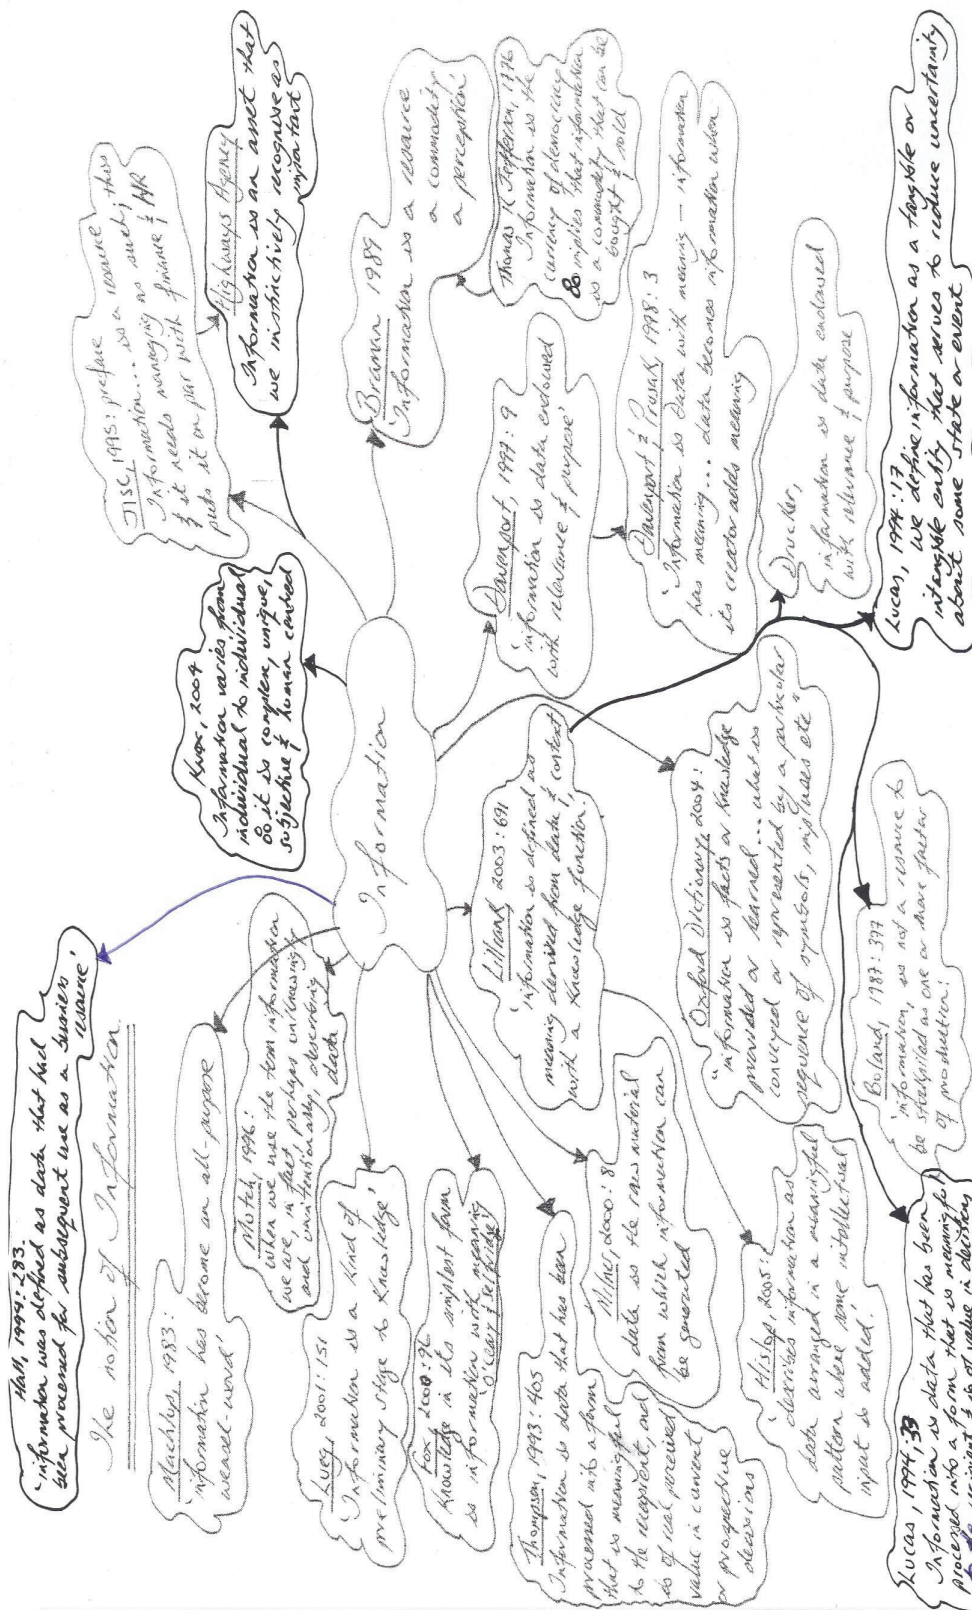 Hall, 1994:283.
'information was defined as data that had
been processed for subsequent use as a business
resource'
The notion of Information
Machlup, 1983:
'information has become an all-purpose
weasel-word'
Motch, 1996:
when we use the term information
we are in fact, perhaps unknowingly
and unintentionally, describing
data
Lueg, 2001:151
'Information is a kind of
preliminary stage to knowledge'
Fox
Knowledge in its simplest form
is information with meaning
Thompson, 1993:405
Information is data that has been
processed into a form
that is meaningful
to the recipient, and
is of real perceived
value in current
or prospective
decisions
Milner, 2000:8
data is the raw material
from which information can
be generated
Hislop, 2005:
'describes information as
data arranged in a meaningful
pattern where some intellectual
input is added'
Lucas, 1994,33
Information is data that has been
processed into a form that is meaningful
to the recipient & is of value in decisions
Knox, 2004
Information varies from
individual to individual
so it is complex, unique,
subjective & human centred
Information
Lillrank, 2003:691
'information is defined as
meaning derived from data & context
with a knowledge function'
Oxford Dictionary, 2004:
"information is facts or knowledge
provided or learned... what is
conveyed or represented by a particular
sequence of symbols, impulses etc"
Boland, 1987:377
'information, is not a resource to
be stockpiled as one or more factor
of production'
JISC, 1995: preface
Information... is a resource
& it needs managing as such; this
puts it on par with finance & HR
Highways Agency
Information is an asset that
we instinctively recognise as
important
Braman 1989
'Information is a resource
a commodity
a perception'
Thomas Jefferson, 1776
Information is the
currency of democracy
so implies that information
is a commodity that can be
bought & sold
Davenport, 1997:9
'information is data endowed
with relevance & purpose'
Davenport & Prusak, 1998:3
'Information is Data with meaning - information
has meaning... data becomes information when
its creator adds meaning
Drucker,
information is data endowed
with relevance & purpose
Lucas, 1994:17
we define information as a tangible or
intangible entity that serves to reduce uncertainty
about some state or event